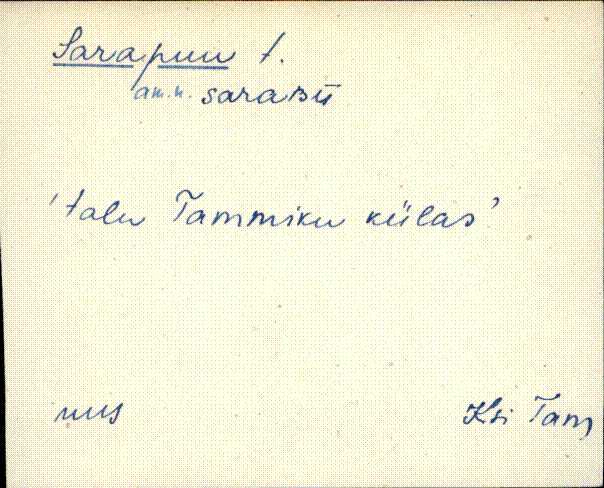 Sarapuu t.
am.n. saraBū
'talu Tammiku külas'
uus
Ksi Tam